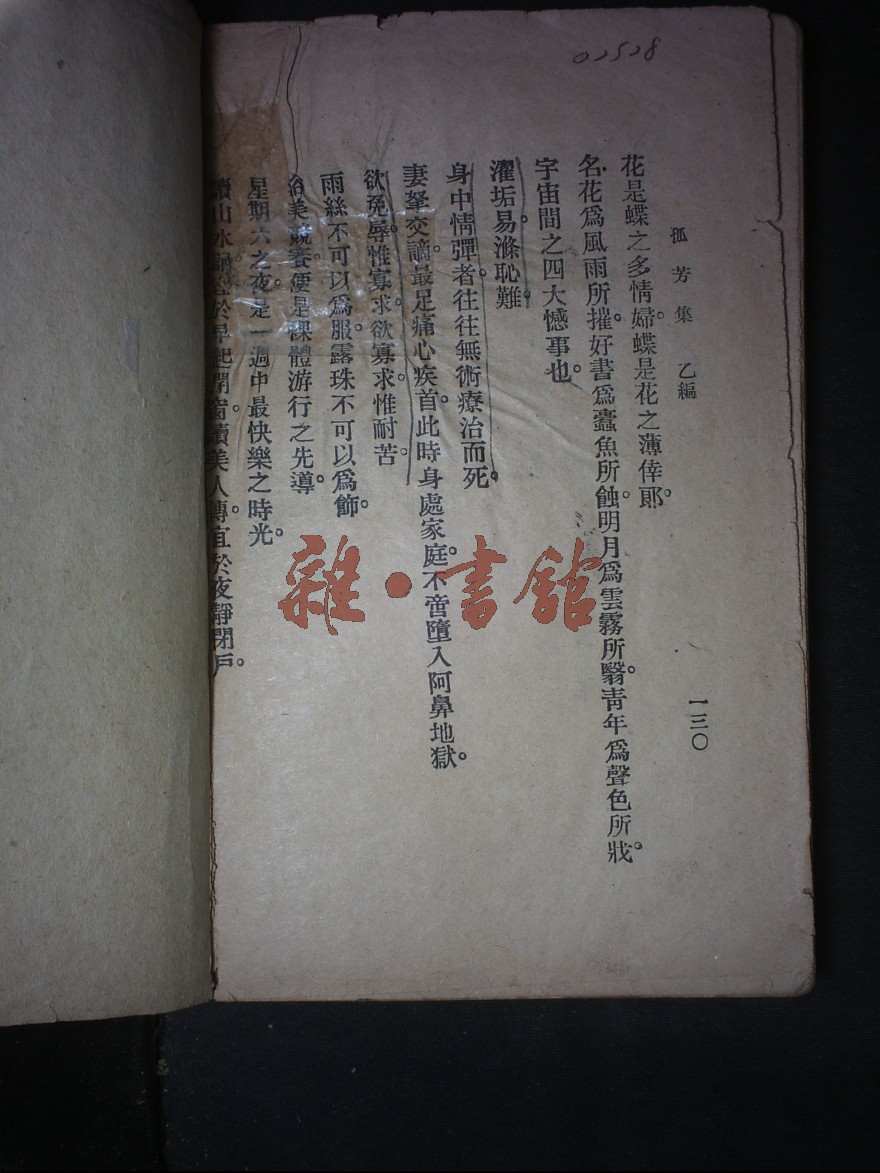 02528
孤芳集　乙編
一三〇
花是蝶之多情婦。蝶是花之薄倖郎。
名花爲風雨所摧。好書爲蠹魚所蝕。明月爲雲霧所翳。靑年爲聲色所戕。
宇宙間之四大憾事也。
濯垢易。滌恥難。
身中情彈者。往往無術療治而死。
妻孥交謫。最足痛心疾首。此時身處家庭。不啻墮入阿鼻地獄。
欲免辱。惟寡求。欲寡求。惟耐苦。
雨絲不可以爲服。露珠不可以爲飾。
浴美競賽。便是裸體游行之先導。
星期六之夜。是一週中最快樂之時光。
讀山水 於早起開窗。讀美人傳。宜於夜靜閉戶。
雜·書館